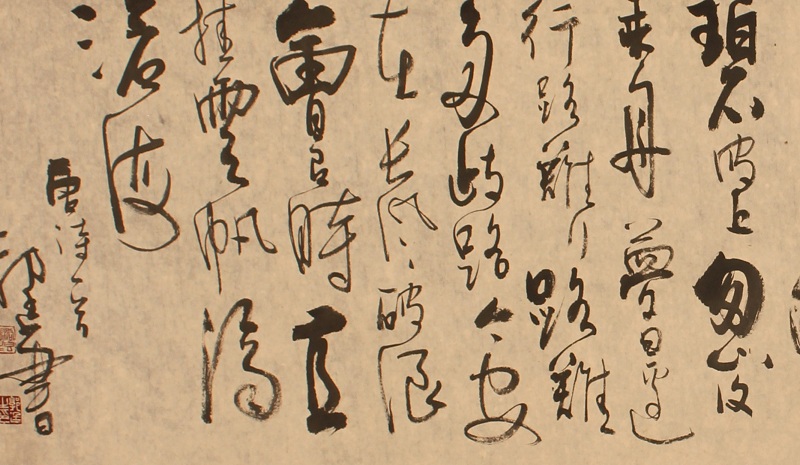 碧溪上忽復
乘舟夢日邊
行路難行路難
多歧路今安
在長風破浪
會有時直
挂雲帆濟
滄海
唐詩一首
書